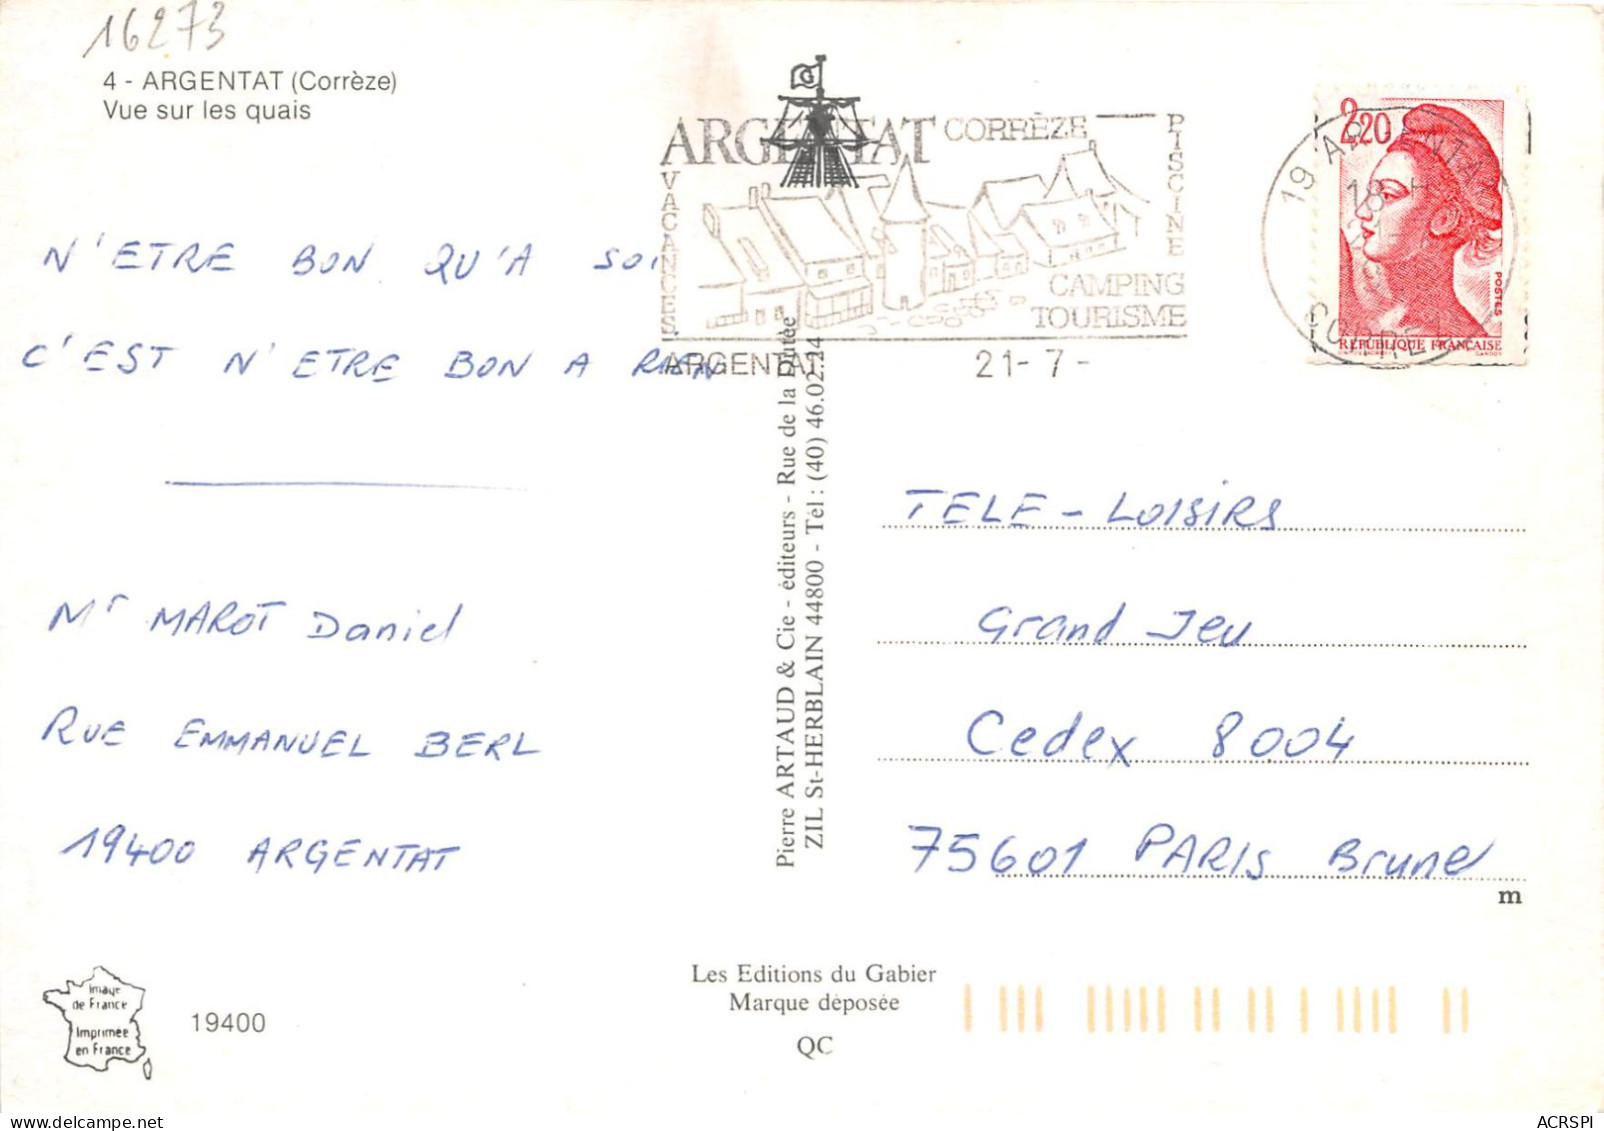 16273
4 - ARGENTAT (Corrèze)
Vue sur les quais
ARGENTAT CORRÈZE
VACANCES
PISCINE
CAMPING
TOURISME
ARGENTAT 21- 7 -
19 ARGENTAT
18 H
CORREZE
2,20
POSTES
REPUBLIQUE FRANÇAISE
GANDON
N'ETRE BON QU'A SOI
C'EST N'ETRE BON A RIEN
Mr MAROT Daniel
RUE EMMANUEL BERL
19400 ARGENTAT
Pierre ARTAUD & Cie - éditeurs - Rue de la Dutée
ZIL St-HERBLAIN 44800 - Tél : (40) 46.02.24
TELE - LOISIRS
Grand Jeu
Cedex 8004
75601 PARIS Brune
m
Image
de France
Imprimée
en France
19400
Les Editions du Gabier
Marque déposée
QC
ACRSPI